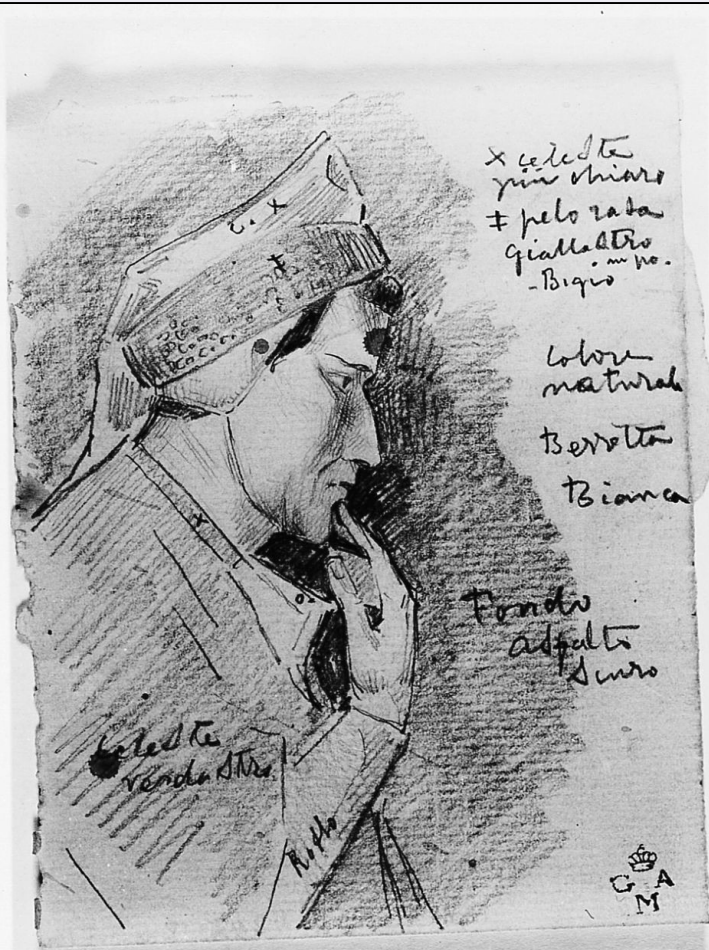 x celeste
più chiaro
‡ pelo rasa
giallastro
un po.
- Bigio
c. x
‡
colore
naturale
Berretta
Bianca
x
Fondo
asfalto
scuro
celeste
verdastro
Rosso
G A
M